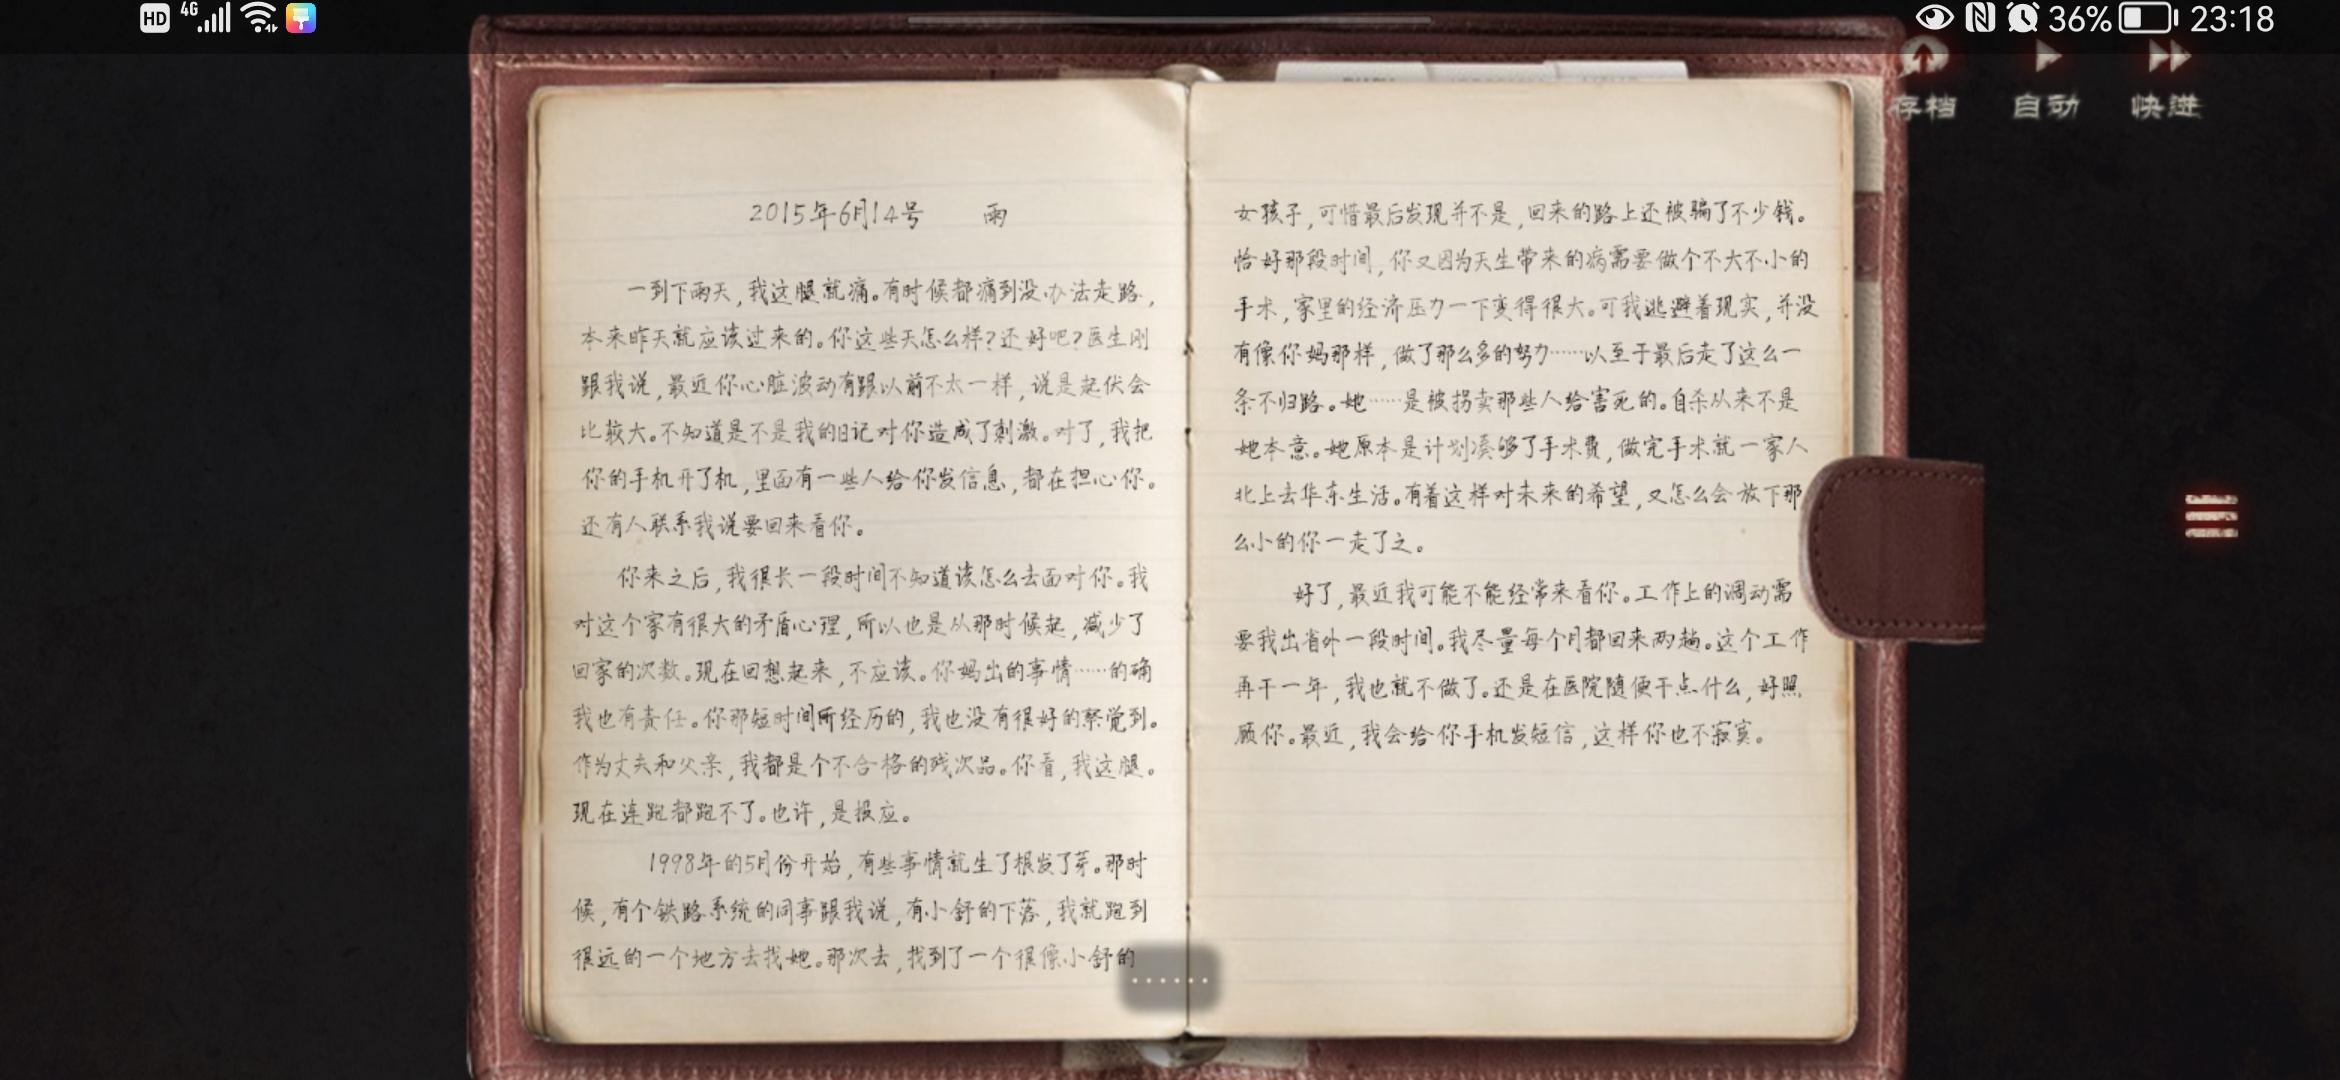 HD 4G 36% 23:18
存档 自动 快进
2015年6月14号 雨
一到下雨天,我这腿就痛。有时候都痛到没办法走路,
本来昨天就应该过来的。你这些天怎么样?还好吧?医生刚
跟我说,最近你心脏波动有跟以前不太一样,说是起伏会
比较大。不知道是不是我的日记对你造成了刺激。对了,我把
你的手机开了机,里面有一些人给你发信息,都在担心你。
还有人联系我说要回来看你。
你来之后,我很长一段时间不知道该怎么去面对你。我
对这个家有很大的矛盾心理,所以也是从那时候起,减少了
回家的次数。现在回想起来,不应该。你妈出的事情……的确
我也有责任。你那短时间所经历的,我也没有很好的察觉到。
作为丈夫和父亲,我都是个不合格的残次品。你看,我这腿。
现在连跑都跑不了。也许,是报应。
1998年的5月份开始,有些事情就生了根发了芽。那时
候,有个铁路系统的同事跟我说,有小舒的下落,我就跑到
很远的一个地方去找她。那次去,找到了一个很像小舒的
女孩子,可惜最后发现并不是,回来的路上还被骗了不少钱。
恰好那段时间,你又因为天生带来的病需要做个不大不小的
手术,家里的经济压力一下变得很大。可我逃避着现实,并没
有像你妈那样,做了那么多的努力……以至于最后走了这么一
条不归路。她……是被拐卖那些人给害死的。自杀从来不是
她本意。她原本是计划凑够了手术费,做完手术就一家人
北上去华东生活。有着这样对未来的希望,又怎么会放下那
么小的你一走了之。
好了,最近我可能不能经常来看你。工作上的调动需
要我出省外一段时间。我尽量每个月都回来两趟。这个工作
再干一年,我也就不做了。还是在医院随便干点什么,好照
顾你。最近,我会给你手机发短信,这样你也不寂寞。
……